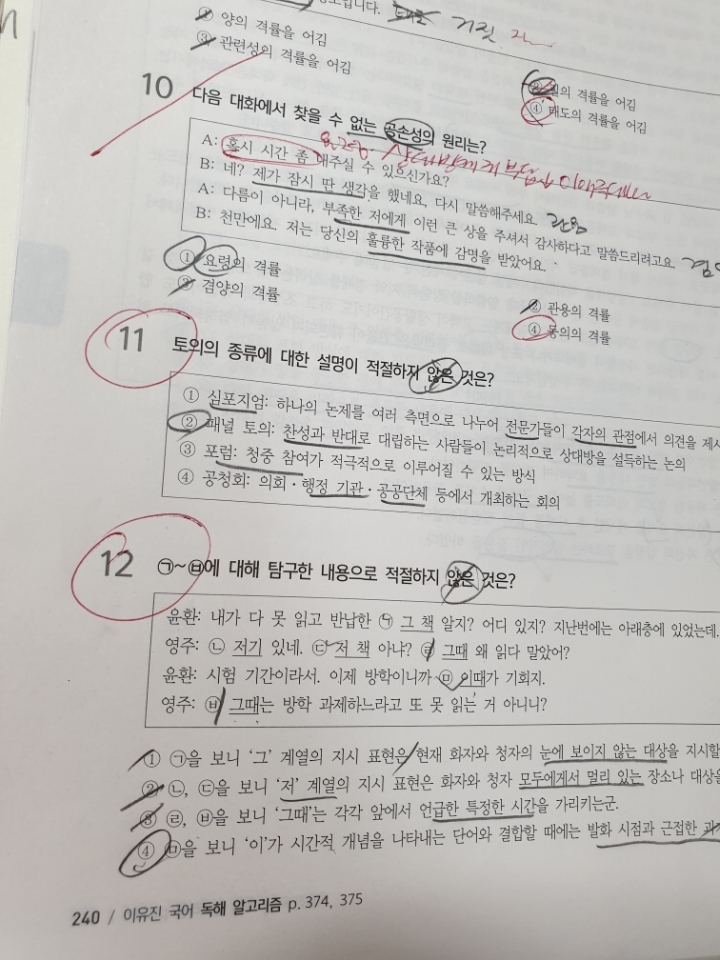 ① 양의 격률을 어김
거짓
③ 관련성의 격률을 어김
② 질의 격률을 어김
④ 태도의 격률을 어김
10 다음 대화에서 찾을 수 없는 공손성의 원리는?
요령: 상대방에게 부담
A: 혹시 시간 좀 내주실 수 있으신가요?
B: 네? 제가 잠시 딴 생각을 했네요, 다시 말씀해주세요. 관용
A: 다름이 아니라, 부족한 저에게 이런 큰 상을 주셔서 감사하다고 말씀드리려고요.
B: 천만에요. 저는 당신의 훌륭한 작품에 감명을 받았어요.
① 요령의 격률
② 관용의 격률
③ 겸양의 격률
④ 동의의 격률
11 토의의 종류에 대한 설명이 적절하지 않은 것은?
① 심포지엄: 하나의 논제를 여러 측면으로 나누어 전문가들이 각자의 관점에서 의견을 제시
② 패널 토의: 찬성과 반대로 대립하는 사람들이 논리적으로 상대방을 설득하는 논의
③ 포럼: 청중 참여가 적극적으로 이루어질 수 있는 방식
④ 공청회: 의회·행정 기관·공공단체 등에서 개최하는 회의
12 ㉠~㉥에 대해 탐구한 내용으로 적절하지 않은 것은?
윤환: 내가 다 못 읽고 반납한 ㉠ 그 책 알지? 어디 있지? 지난번에는 아래층에 있었는데.
영주: ㉡ 저기 있네. ㉢ 저 책 아냐? ㉣ 그때 왜 읽다 말았어?
윤환: 시험 기간이라서. 이제 방학이니까 ㉤ 이때가 기회지.
영주: ㉥ 그때는 방학 과제하느라고 또 못 읽는 거 아니니?
① ㉠을 보니 '그' 계열의 지시 표현은 현재 화자와 청자의 눈에 보이지 않는 대상을 지시할
② ㉡, ㉢을 보니 '저' 계열의 지시 표현은 화자와 청자 모두에게서 멀리 있는 장소나 대상을
③ ㉣, ㉥을 보니 '그때'는 각각 앞에서 언급한 특정한 시간을 가리키는군.
④ ㉤을 보니 '이'가 시간적 개념을 나타내는 단어와 결합할 때에는 발화 시점과 근접한 과거
240 / 이유진 국어 독해 알고리즘 p. 374, 375